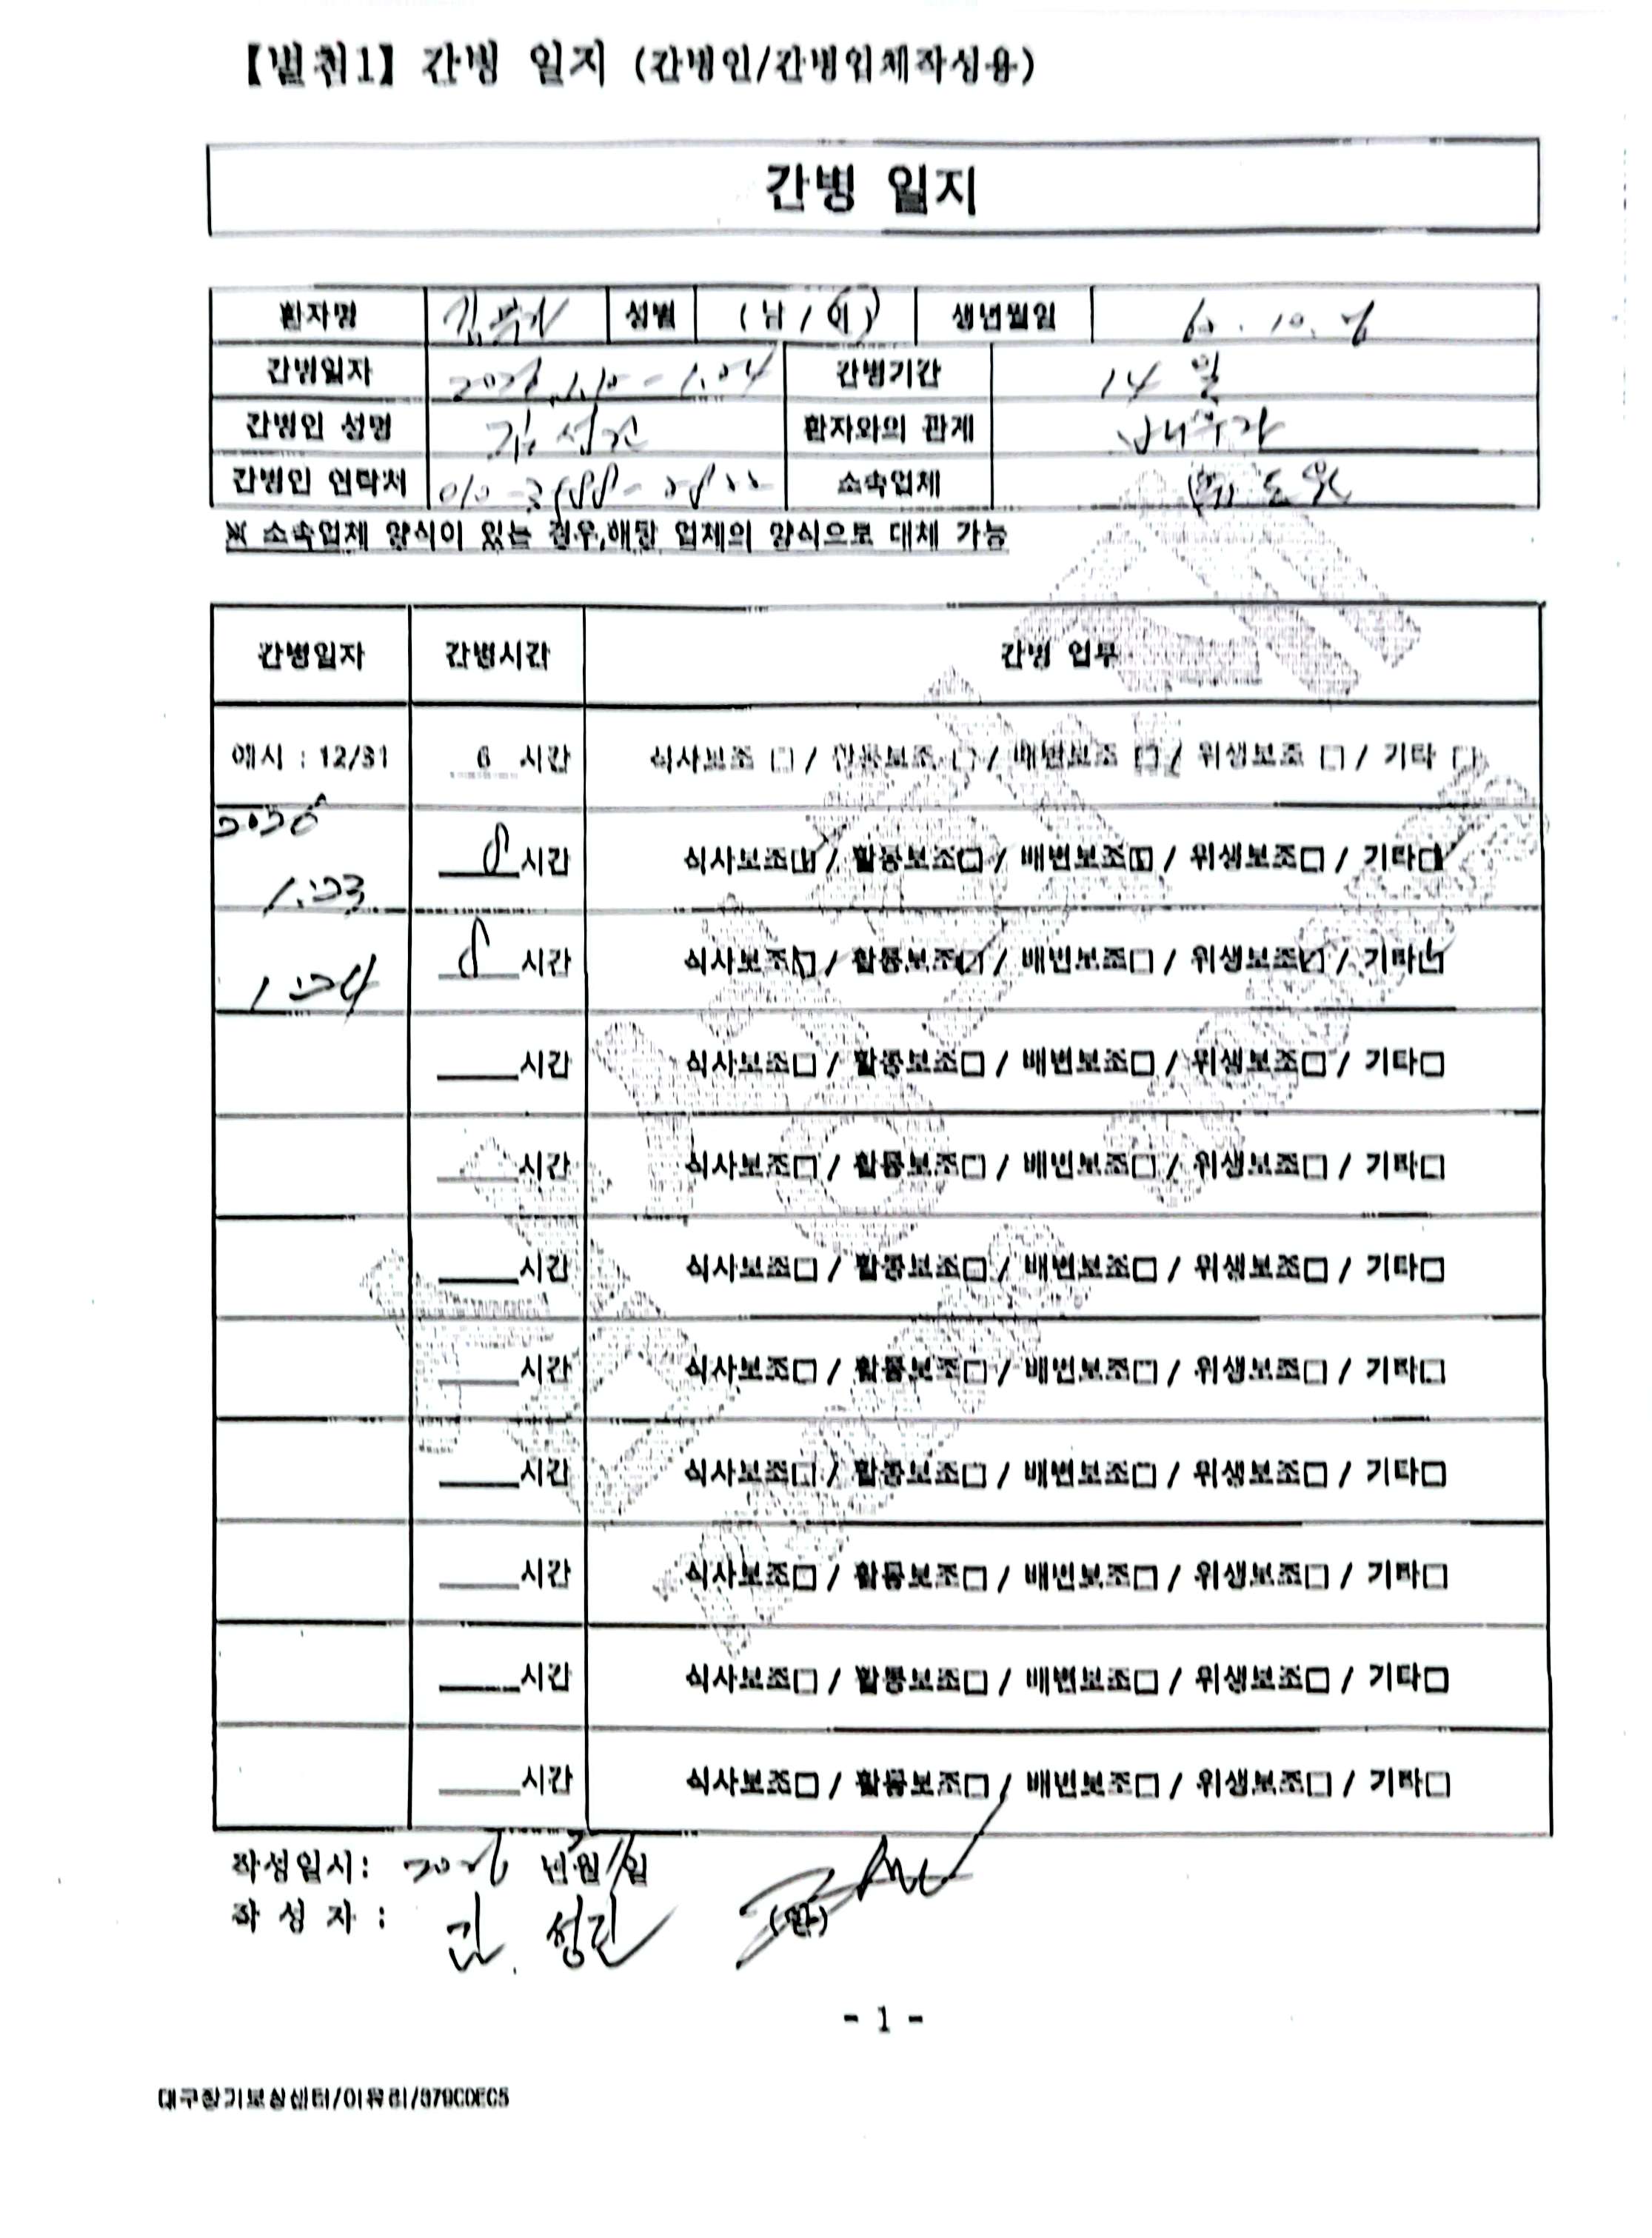 【별첨1】 간병 일지 (간병인/간병업체작성용)
간병 일지
환자명 성별 (남 / 여) 생년월일 60. 10. 6
간병일자 2026. 1.10 - 1.24 간병기간 14 일
간병인 성명 김 성진 환자와의 관계 배우자
간병인 연락처 소속업체
※ 소속업체 양식이 있는 경우,해당 업체의 양식으로 대체 가능
간병일자 간병시간 간병 업무
예시 : 12/31 6 시간 식사보조 □ / 활동보조 □ / 배변보조 □ / 위생보조 □ / 기타 □
2026 1.23 8 시간 식사보조☑ / 활동보조□ / 배변보조☑ / 위생보조□ / 기타☑
1.24 8 시간 식사보조☑ / 활동보조☑ / 배변보조□ / 위생보조☑ / 기타☑
시간 식사보조□ / 활동보조□ / 배변보조□ / 위생보조□ / 기타□
시간 식사보조□ / 활동보조□ / 배변보조□ / 위생보조□ / 기타□
시간 식사보조□ / 활동보조□ / 배변보조□ / 위생보조□ / 기타□
시간 식사보조□ / 활동보조□ / 배변보조□ / 위생보조□ / 기타□
시간 식사보조□ / 활동보조□ / 배변보조□ / 위생보조□ / 기타□
시간 식사보조□ / 활동보조□ / 배변보조□ / 위생보조□ / 기타□
시간 식사보조□ / 활동보조□ / 배변보조□ / 위생보조□ / 기타□
시간 식사보조□ / 활동보조□ / 배변보조□ / 위생보조□ / 기타□
작성일시: 2026 년 월 일
작 성 자 : 김 성진 (인)
- 1 -
대구장기보상센터/이유리/379C0EC5